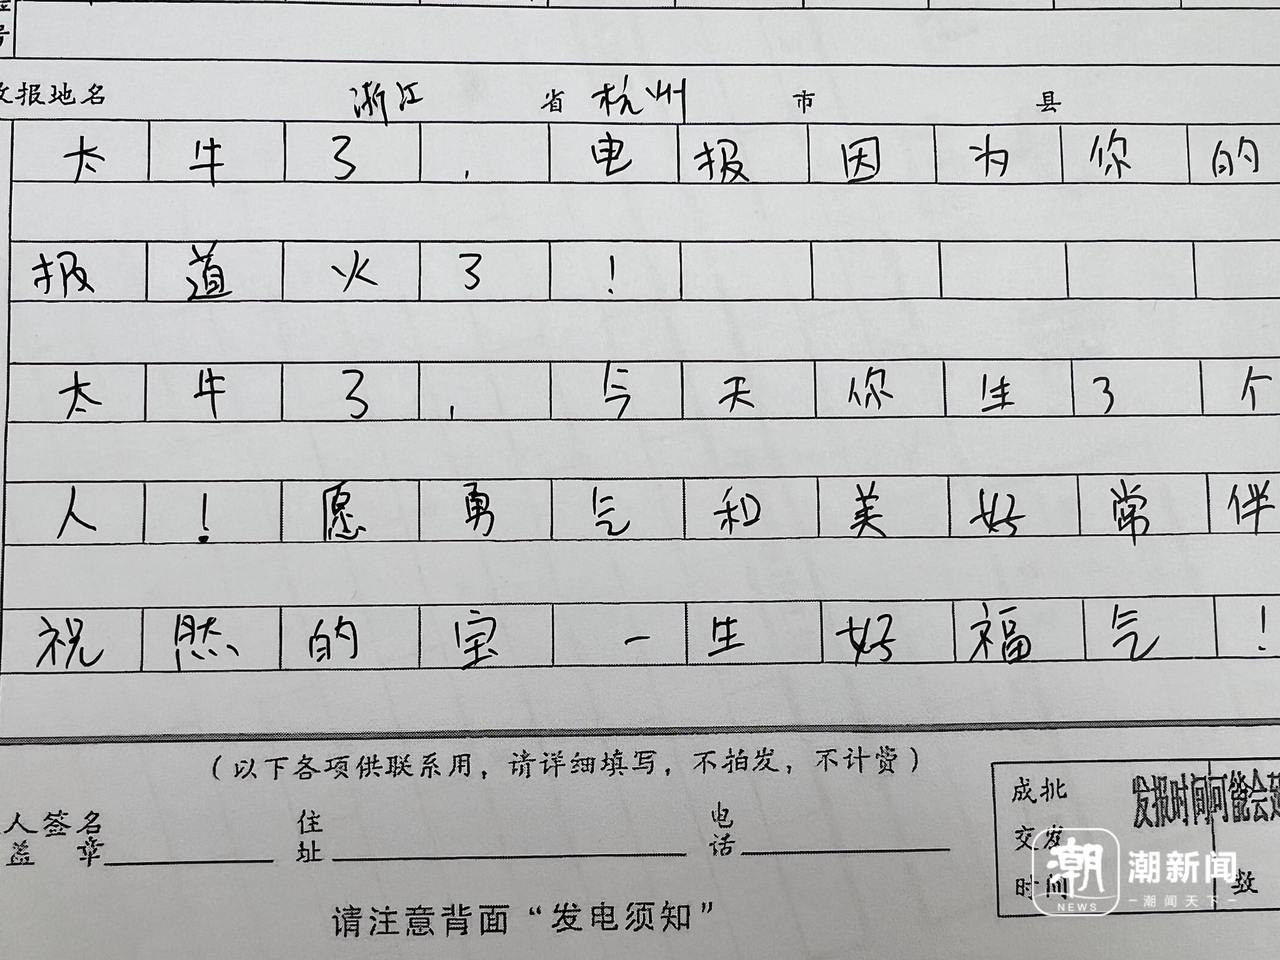 号
收报地名 浙江 省 杭州 市 县
太牛了，电报因为你的
报道火了！
太牛了，今天你生了个
人！愿勇气和美好常伴
祝然的宝一生好福气！
（以下各项供联系用，请详细填写，不拍发，不计费）
人签名 住 电
盖章 址 话
成批 发报时间可能会延
交发
时间 数
请注意背面“发电须知”
潮 潮新闻
NEWS 潮闻天下